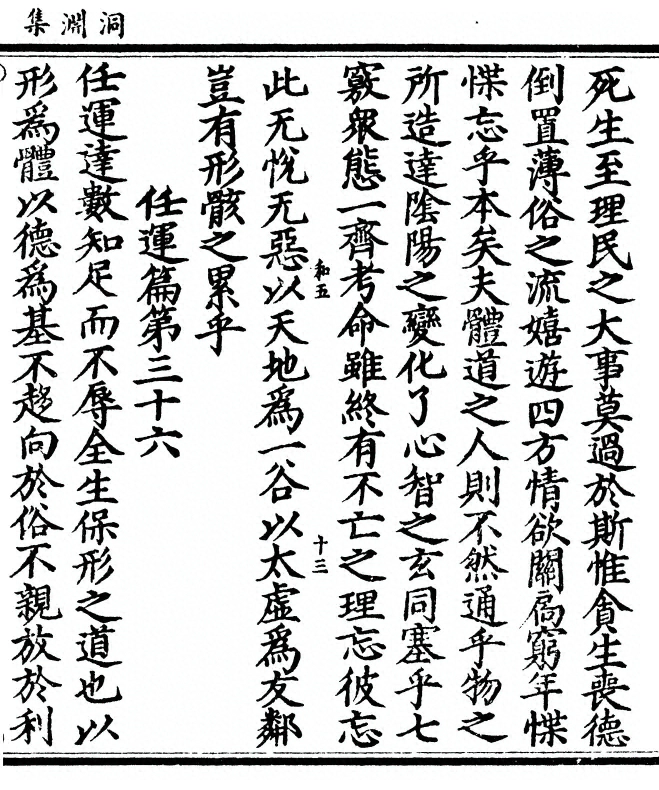 洞淵集
死生至理民之大事莫過於斯惟貪生喪德
倒置薄俗之流嬉遊四方情欲關扃窮年惵
惵忘乎本矣夫體道之人則不然通乎物之
所造達陰陽之變化了心智之玄同塞乎七
竅衆態一齊考命雖終有不亡之理忘彼忘
此无恱无惡以天地爲一谷以太虛爲友鄰
和五
十三
豈有形骸之累乎
任運篇第三十六
任運達數知足而不辱全生保形之道也以
形爲體以德爲基不趍向於俗不親放於利